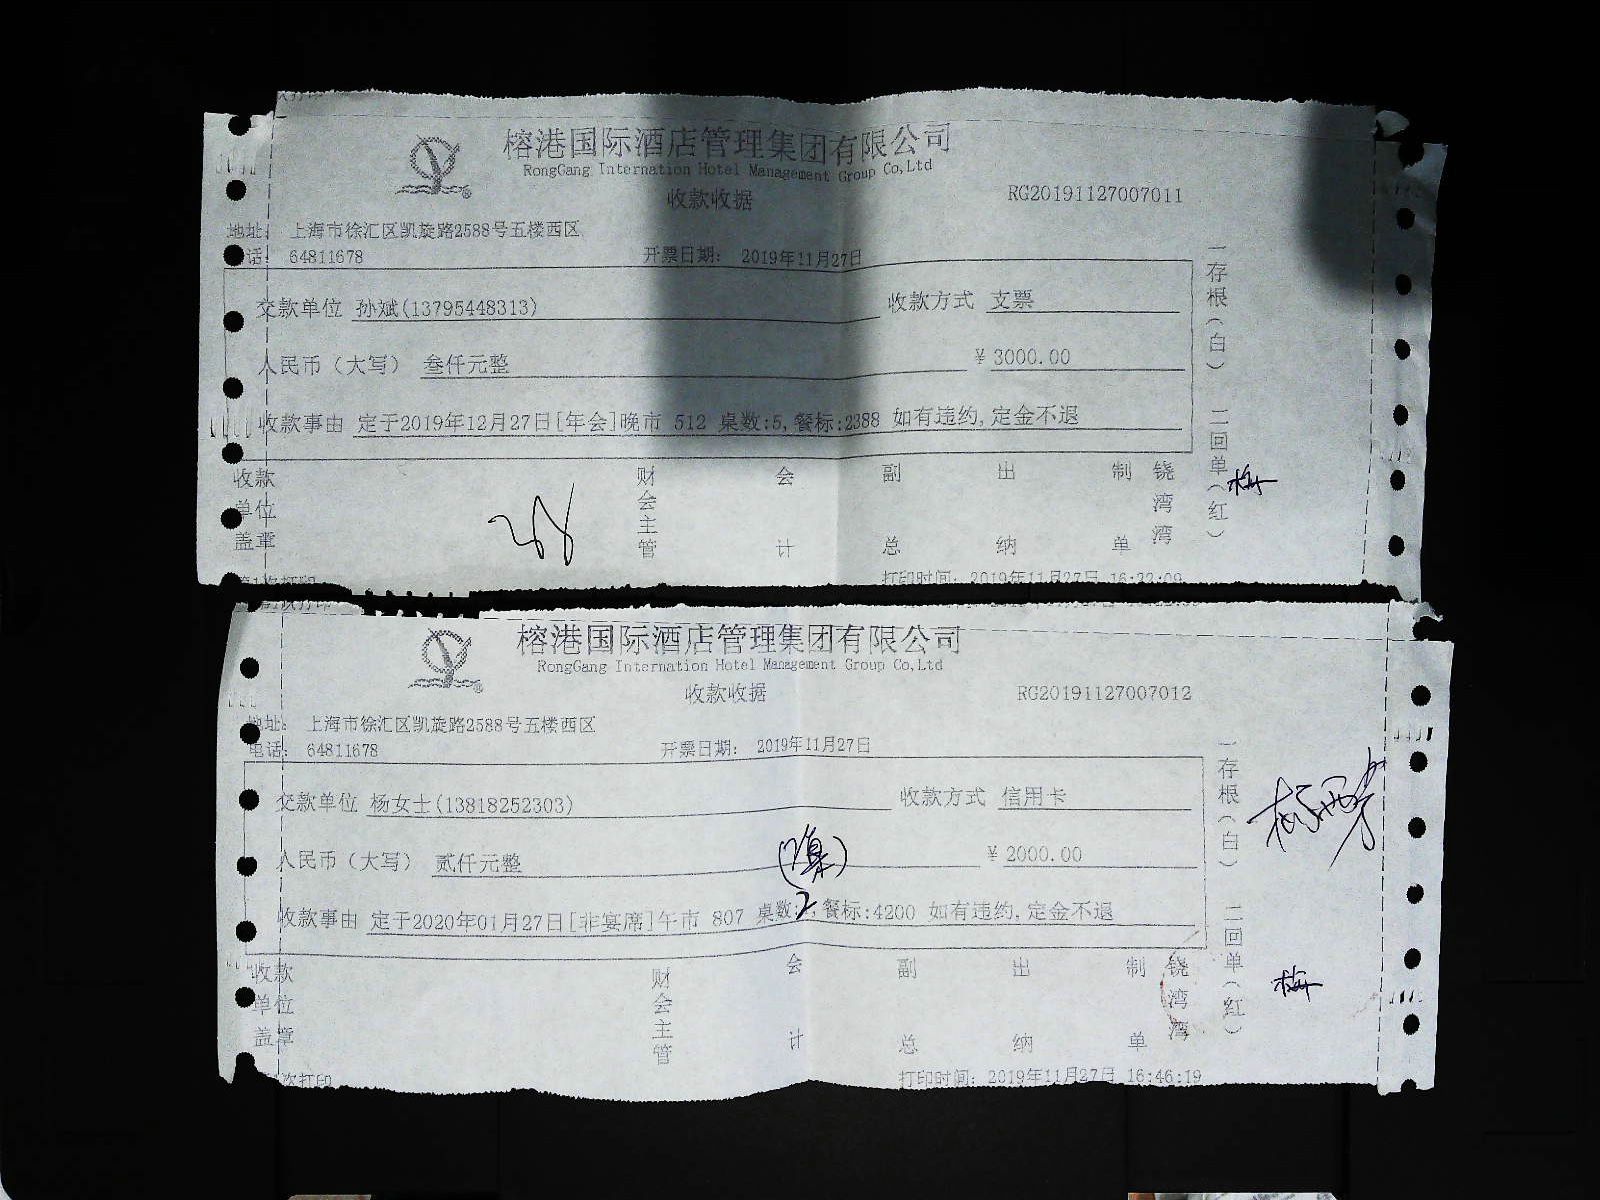 榕港国际酒店管理集团有限公司
RongGang Internation Hotel Management Group Co,Ltd
收款收据
RG20191127007011
地址: 上海市徐汇区凯旋路2588号五楼西区
话: 64811678
开票日期: 2019年11月27日
交款单位 孙斌(13795448313)
收款方式 支票
人民币（大写） 叁仟元整
¥3000.00
收款事由 定于2019年12月27日[年会]晚市 512 桌数:5,餐标:2388 如有违约,定金不退
一存根（白） 二回单（红）
收款单位盖章
财会主管
会计
副总
出纳
制单
铙湾湾
梅
打印时间: 2019年11月27日 16:22:09
榕港国际酒店管理集团有限公司
RongGang Internation Hotel Management Group Co,Ltd
收款收据
RG20191127007012
地址: 上海市徐汇区凯旋路2588号五楼西区
电话: 64811678
开票日期: 2019年11月27日
交款单位 杨女士(13818252303)
收款方式 信用卡
人民币（大写） 贰仟元整
¥2000.00
收款事由 定于2020年01月27日[非宴席]午市 807 桌数:2,餐标:4200 如有违约,定金不退
一存根（白） 二回单（红）
收款单位盖章
财会主管
会计
副总
出纳
制单
铙湾湾
梅
次打印
打印时间: 2019年11月27日 16:46:19